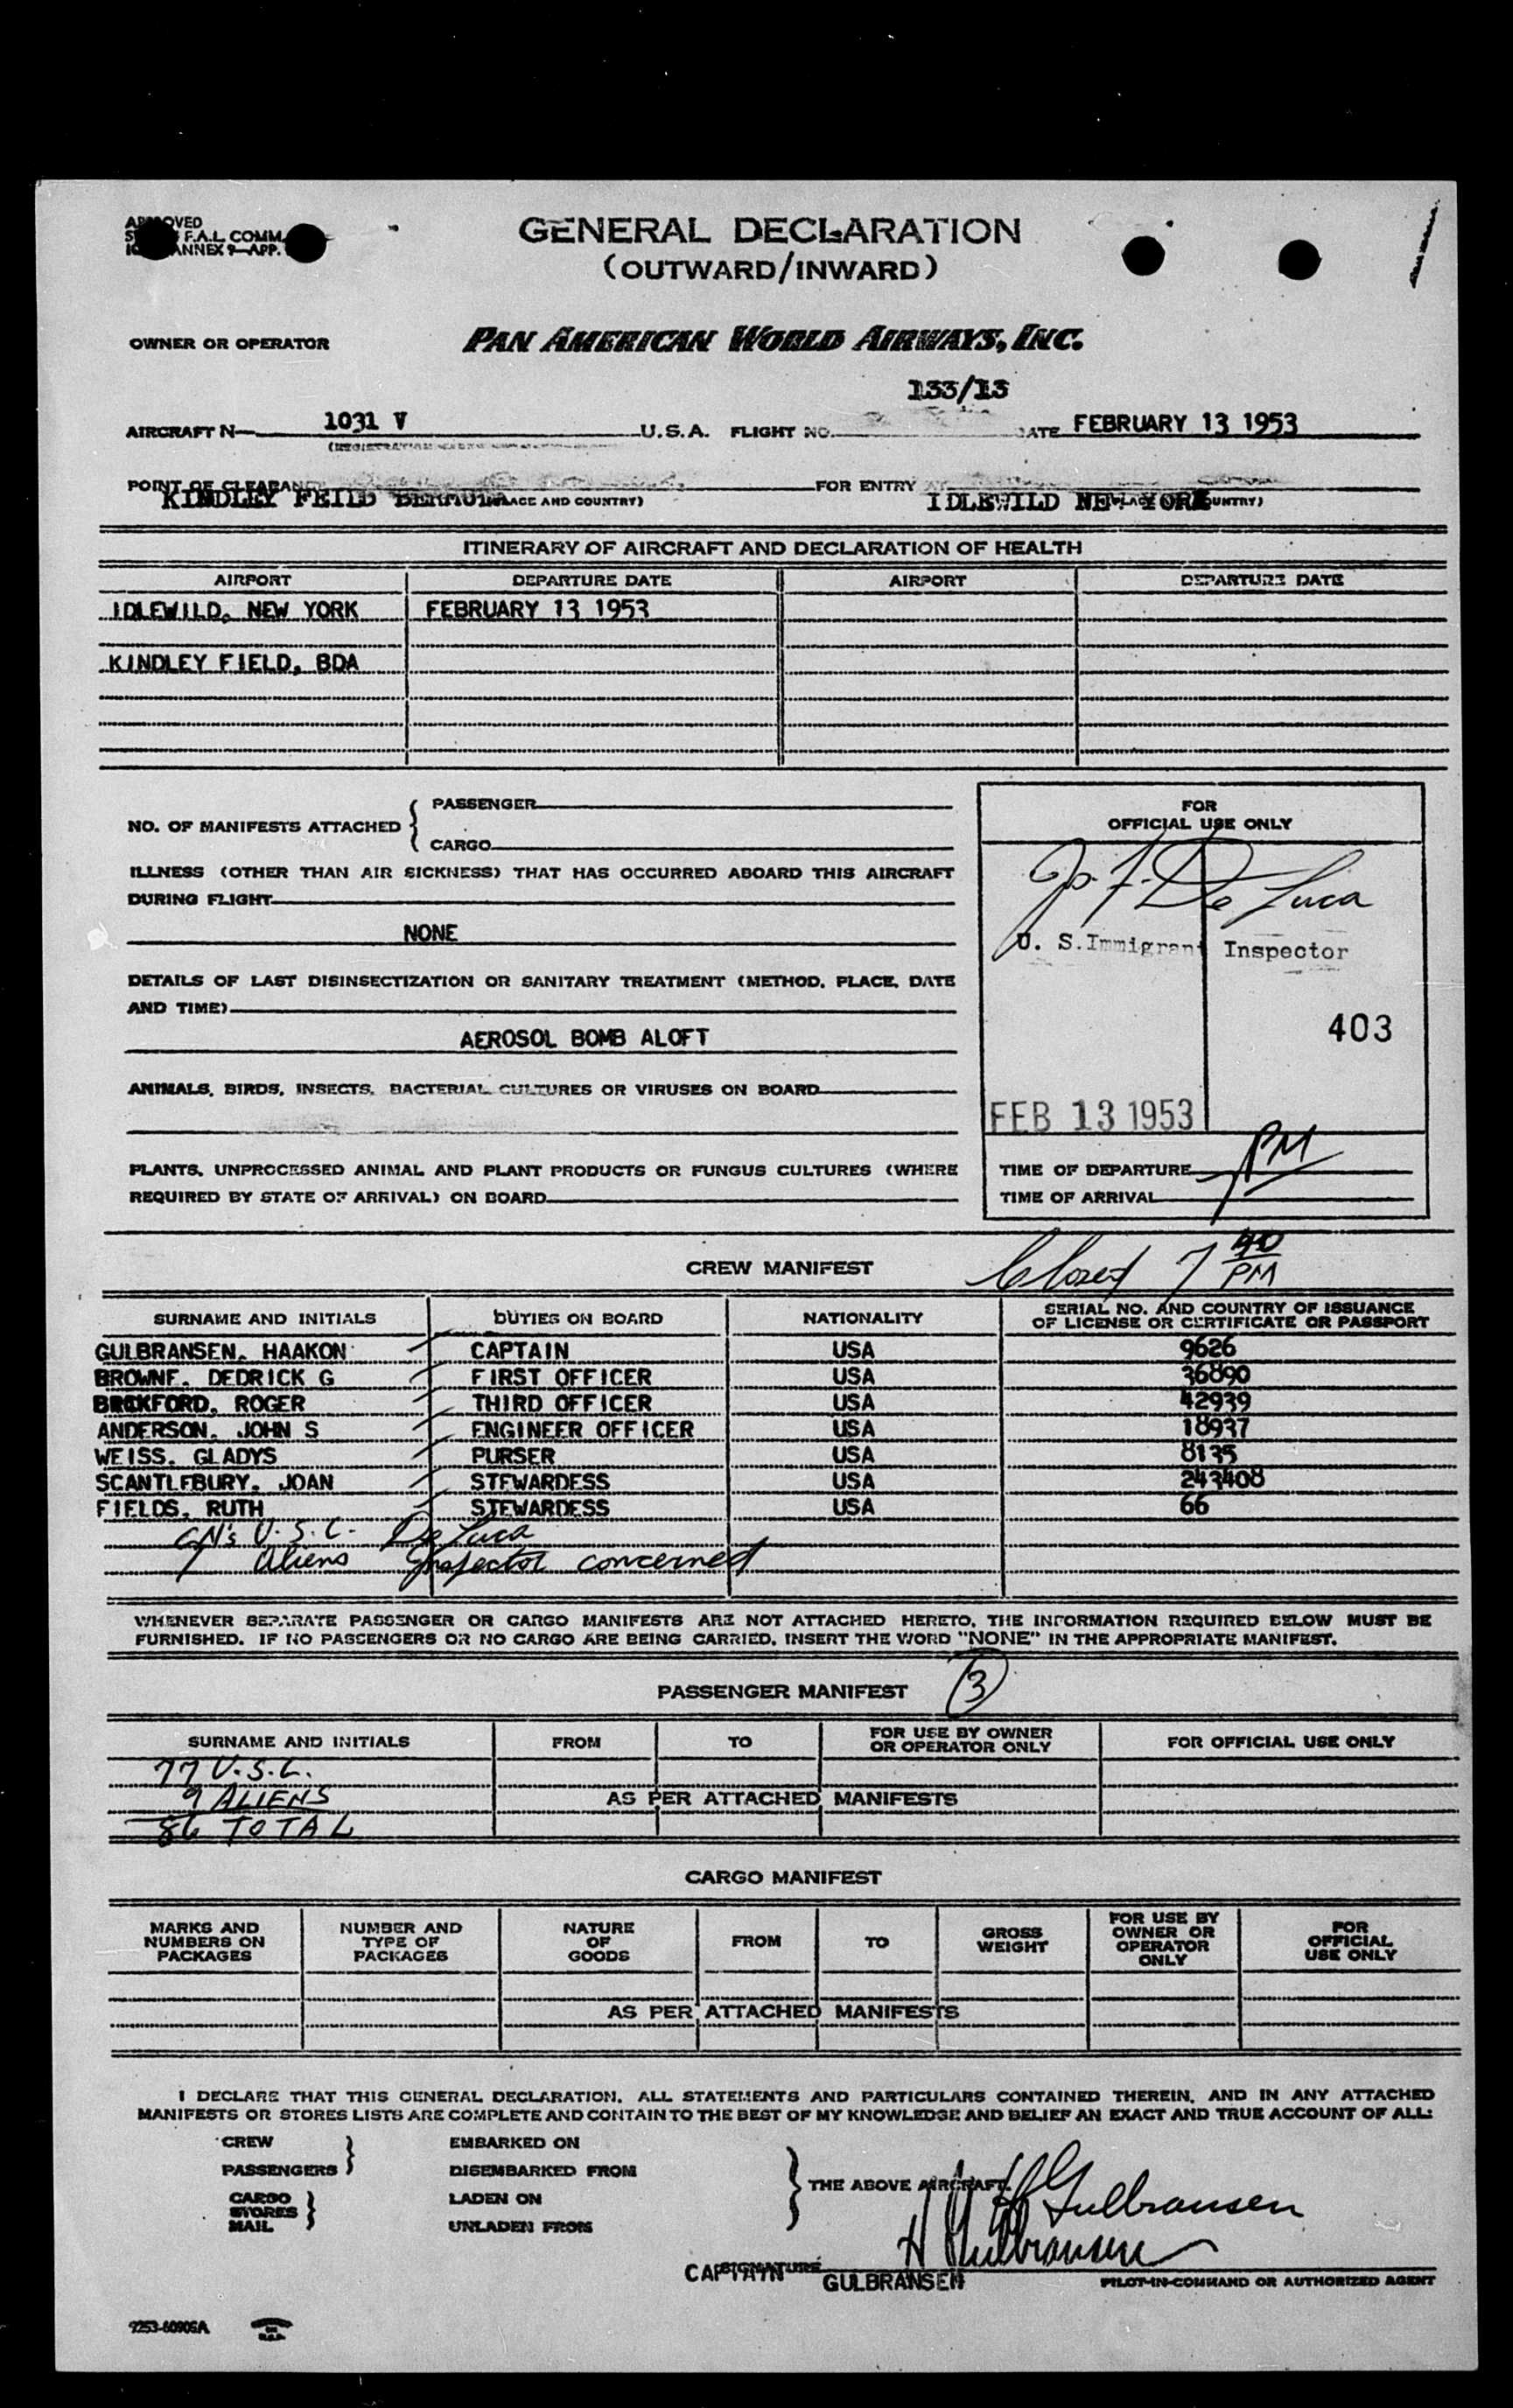 GENERAL DECLARATION
(OUTWARD/INWARD)
F.A.L. COMM.
ANNEX 9—APP.
OWNER OR OPERATOR PAN AMERICAN WORLD AIRWAYS, INC.
133/13
AIRCRAFT N— 1031 V U.S.A. FLIGHT NO. DATE FEBRUARY 13 1953
POINT OF CLEARANCE KINDLEY FEILD BERMUDA (PLACE AND COUNTRY) FOR ENTRY AT IDLEWILD NEW YORK (PLACE AND COUNTRY)
ITINERARY OF AIRCRAFT AND DECLARATION OF HEALTH
AIRPORT DEPARTURE DATE AIRPORT DEPARTURE DATE
IDLEWILD, NEW YORK FEBRUARY 13 1953
KINDLEY FIELD, BDA
NO. OF MANIFESTS ATTACHED { PASSENGER
CARGO
ILLNESS (OTHER THAN AIR SICKNESS) THAT HAS OCCURRED ABOARD THIS AIRCRAFT
DURING FLIGHT
NONE
DETAILS OF LAST DISINSECTIZATION OR SANITARY TREATMENT (METHOD, PLACE, DATE
AND TIME)
AEROSOL BOMB ALOFT
ANIMALS, BIRDS, INSECTS, BACTERIAL CULTURES OR VIRUSES ON BOARD
PLANTS, UNPROCESSED ANIMAL AND PLANT PRODUCTS OR FUNGUS CULTURES (WHERE
REQUIRED BY STATE OF ARRIVAL) ON BOARD
FOR
OFFICIAL USE ONLY
Jo. F. De Luca
U. S. Immigrant Inspector
403
FEB 13 1953
TIME OF DEPARTURE PM
TIME OF ARRIVAL
CREW MANIFEST Closed 7 40 PM
SURNAME AND INITIALS DUTIES ON BOARD NATIONALITY SERIAL NO. AND COUNTRY OF ISSUANCE
OF LICENSE OR CERTIFICATE OR PASSPORT
GULBRANSEN, HAAKON CAPTAIN USA 9626
BROWNE, DEDRICK G FIRST OFFICER USA 36890
BICKFORD, ROGER THIRD OFFICER USA 42939
ANDERSON, JOHN S ENGINEER OFFICER USA 18937
WEISS, GLADYS PURSER USA 8135
SCANTLEBURY, JOAN STEWARDESS USA 243408
FIELDS, RUTH STEWARDESS USA 66
U.S.C. De Luca
Aliens Inspector concerned
WHENEVER SEPARATE PASSENGER OR CARGO MANIFESTS ARE NOT ATTACHED HERETO, THE INFORMATION REQUIRED BELOW MUST BE
FURNISHED. IF NO PASSENGERS OR NO CARGO ARE BEING CARRIED, INSERT THE WORD "NONE" IN THE APPROPRIATE MANIFEST.
PASSENGER MANIFEST 3
SURNAME AND INITIALS FROM TO FOR USE BY OWNER
OR OPERATOR ONLY FOR OFFICIAL USE ONLY
77 U.S.C.
9 ALIENS
AS PER ATTACHED MANIFESTS
86 TOTAL
CARGO MANIFEST
MARKS AND
NUMBERS ON
PACKAGES NUMBER AND
TYPE OF
PACKAGES NATURE
OF
GOODS FROM TO GROSS
WEIGHT FOR USE BY
OWNER OR
OPERATOR
ONLY FOR
OFFICIAL
USE ONLY
AS PER ATTACHED MANIFESTS
I DECLARE THAT THIS GENERAL DECLARATION, ALL STATEMENTS AND PARTICULARS CONTAINED THEREIN, AND IN ANY ATTACHED
MANIFESTS OR STORES LISTS ARE COMPLETE AND CONTAIN TO THE BEST OF MY KNOWLEDGE AND BELIEF AN EXACT AND TRUE ACCOUNT OF ALL:
CREW EMBARKED ON
PASSENGERS DISEMBARKED FROM
THE ABOVE AIRCRAFT.
CARGO LADEN ON
STORES
MAIL UNLADEN FROM
H Gulbransen
H Gulbransen
CAPTAIN SIGNATURE GULBRANSEN PILOT-IN-COMMAND OR AUTHORIZED AGENT
9253-60905A